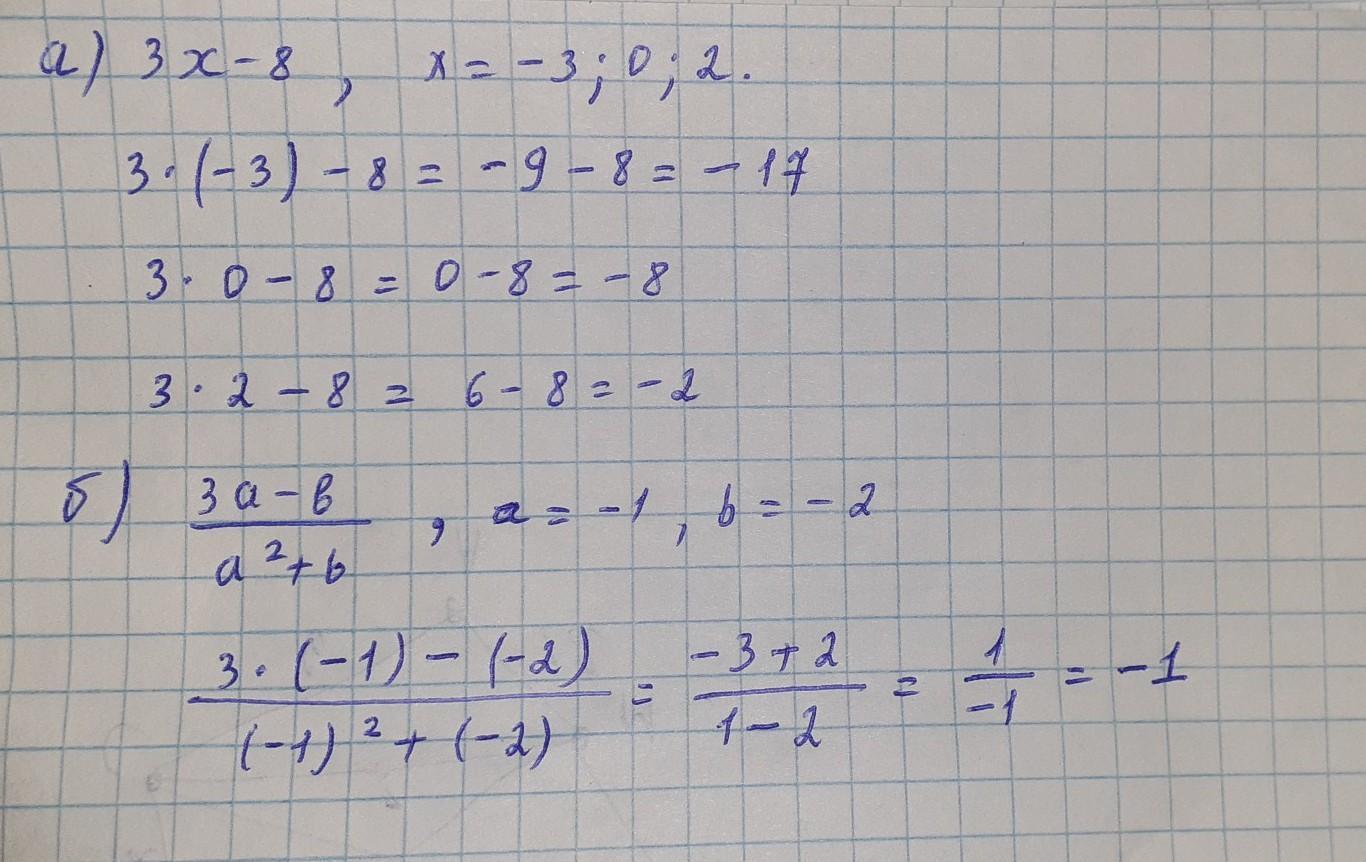 а) 3x - 8 , x = -3; 0; 2.
3 · (-3) - 8 = -9 - 8 = -17
3 · 0 - 8 = 0 - 8 = -8
3 · 2 - 8 = 6 - 8 = -2
б) (3a - b)/(a² + b) , a = -1, b = -2
(3 · (-1) - (-2))/((-1)² + (-2)) = (-3 + 2)/(1 - 2) = 1/(-1) = -1